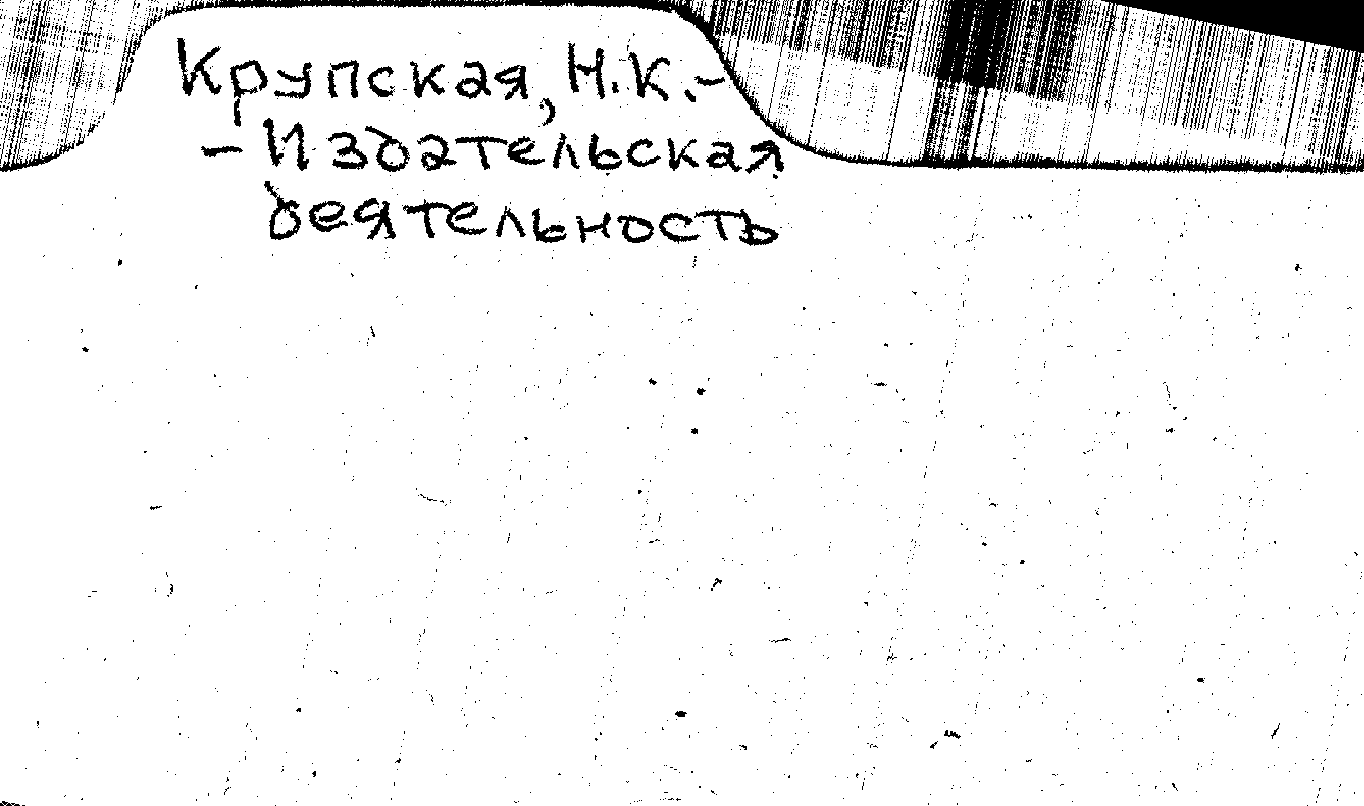 Крупская, Н.К.-
- Издательская
деятельность